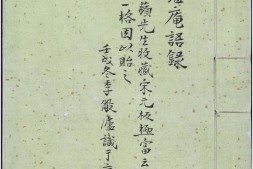 庵語錄
蘋先生收藏宋元板極富云
一格因以貽之
壬戌冬季嚴廬識于